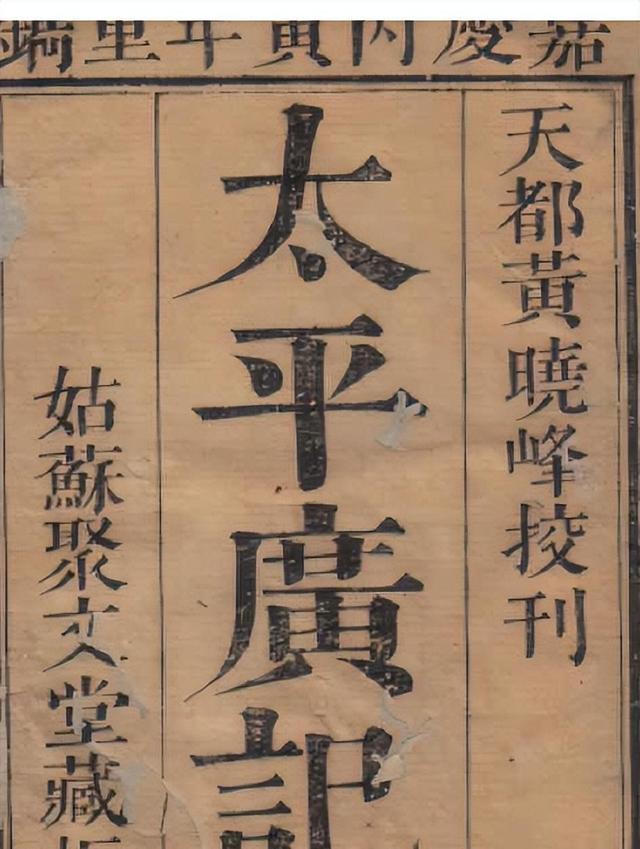 嘉慶丙寅年重鐫
天都黃曉峰挍刊
太平廣記
姑蘇聚文堂藏